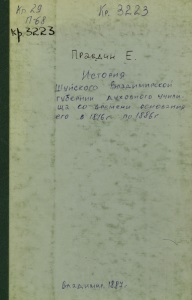 Ко 29
П 68
кр 3223
Кр. 3223
Правдин Е.
История
Шуйского Владимирской
губернии духовного учили
ща со времени основания
его в 1816 г. по 1886 г
Владимир. 1887.